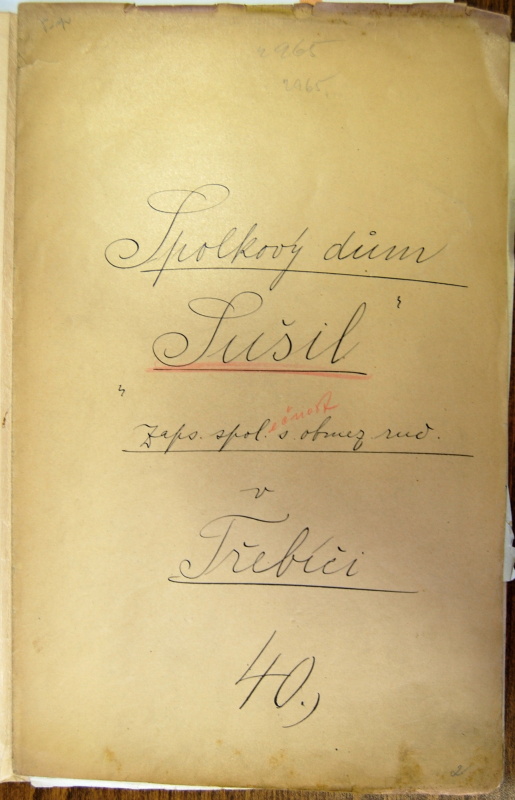 2965
2965.
Spolkový dům
„Sušil"
zaps. spol.ečnost s obmez ruč.
v
Třebíči
40.,
2